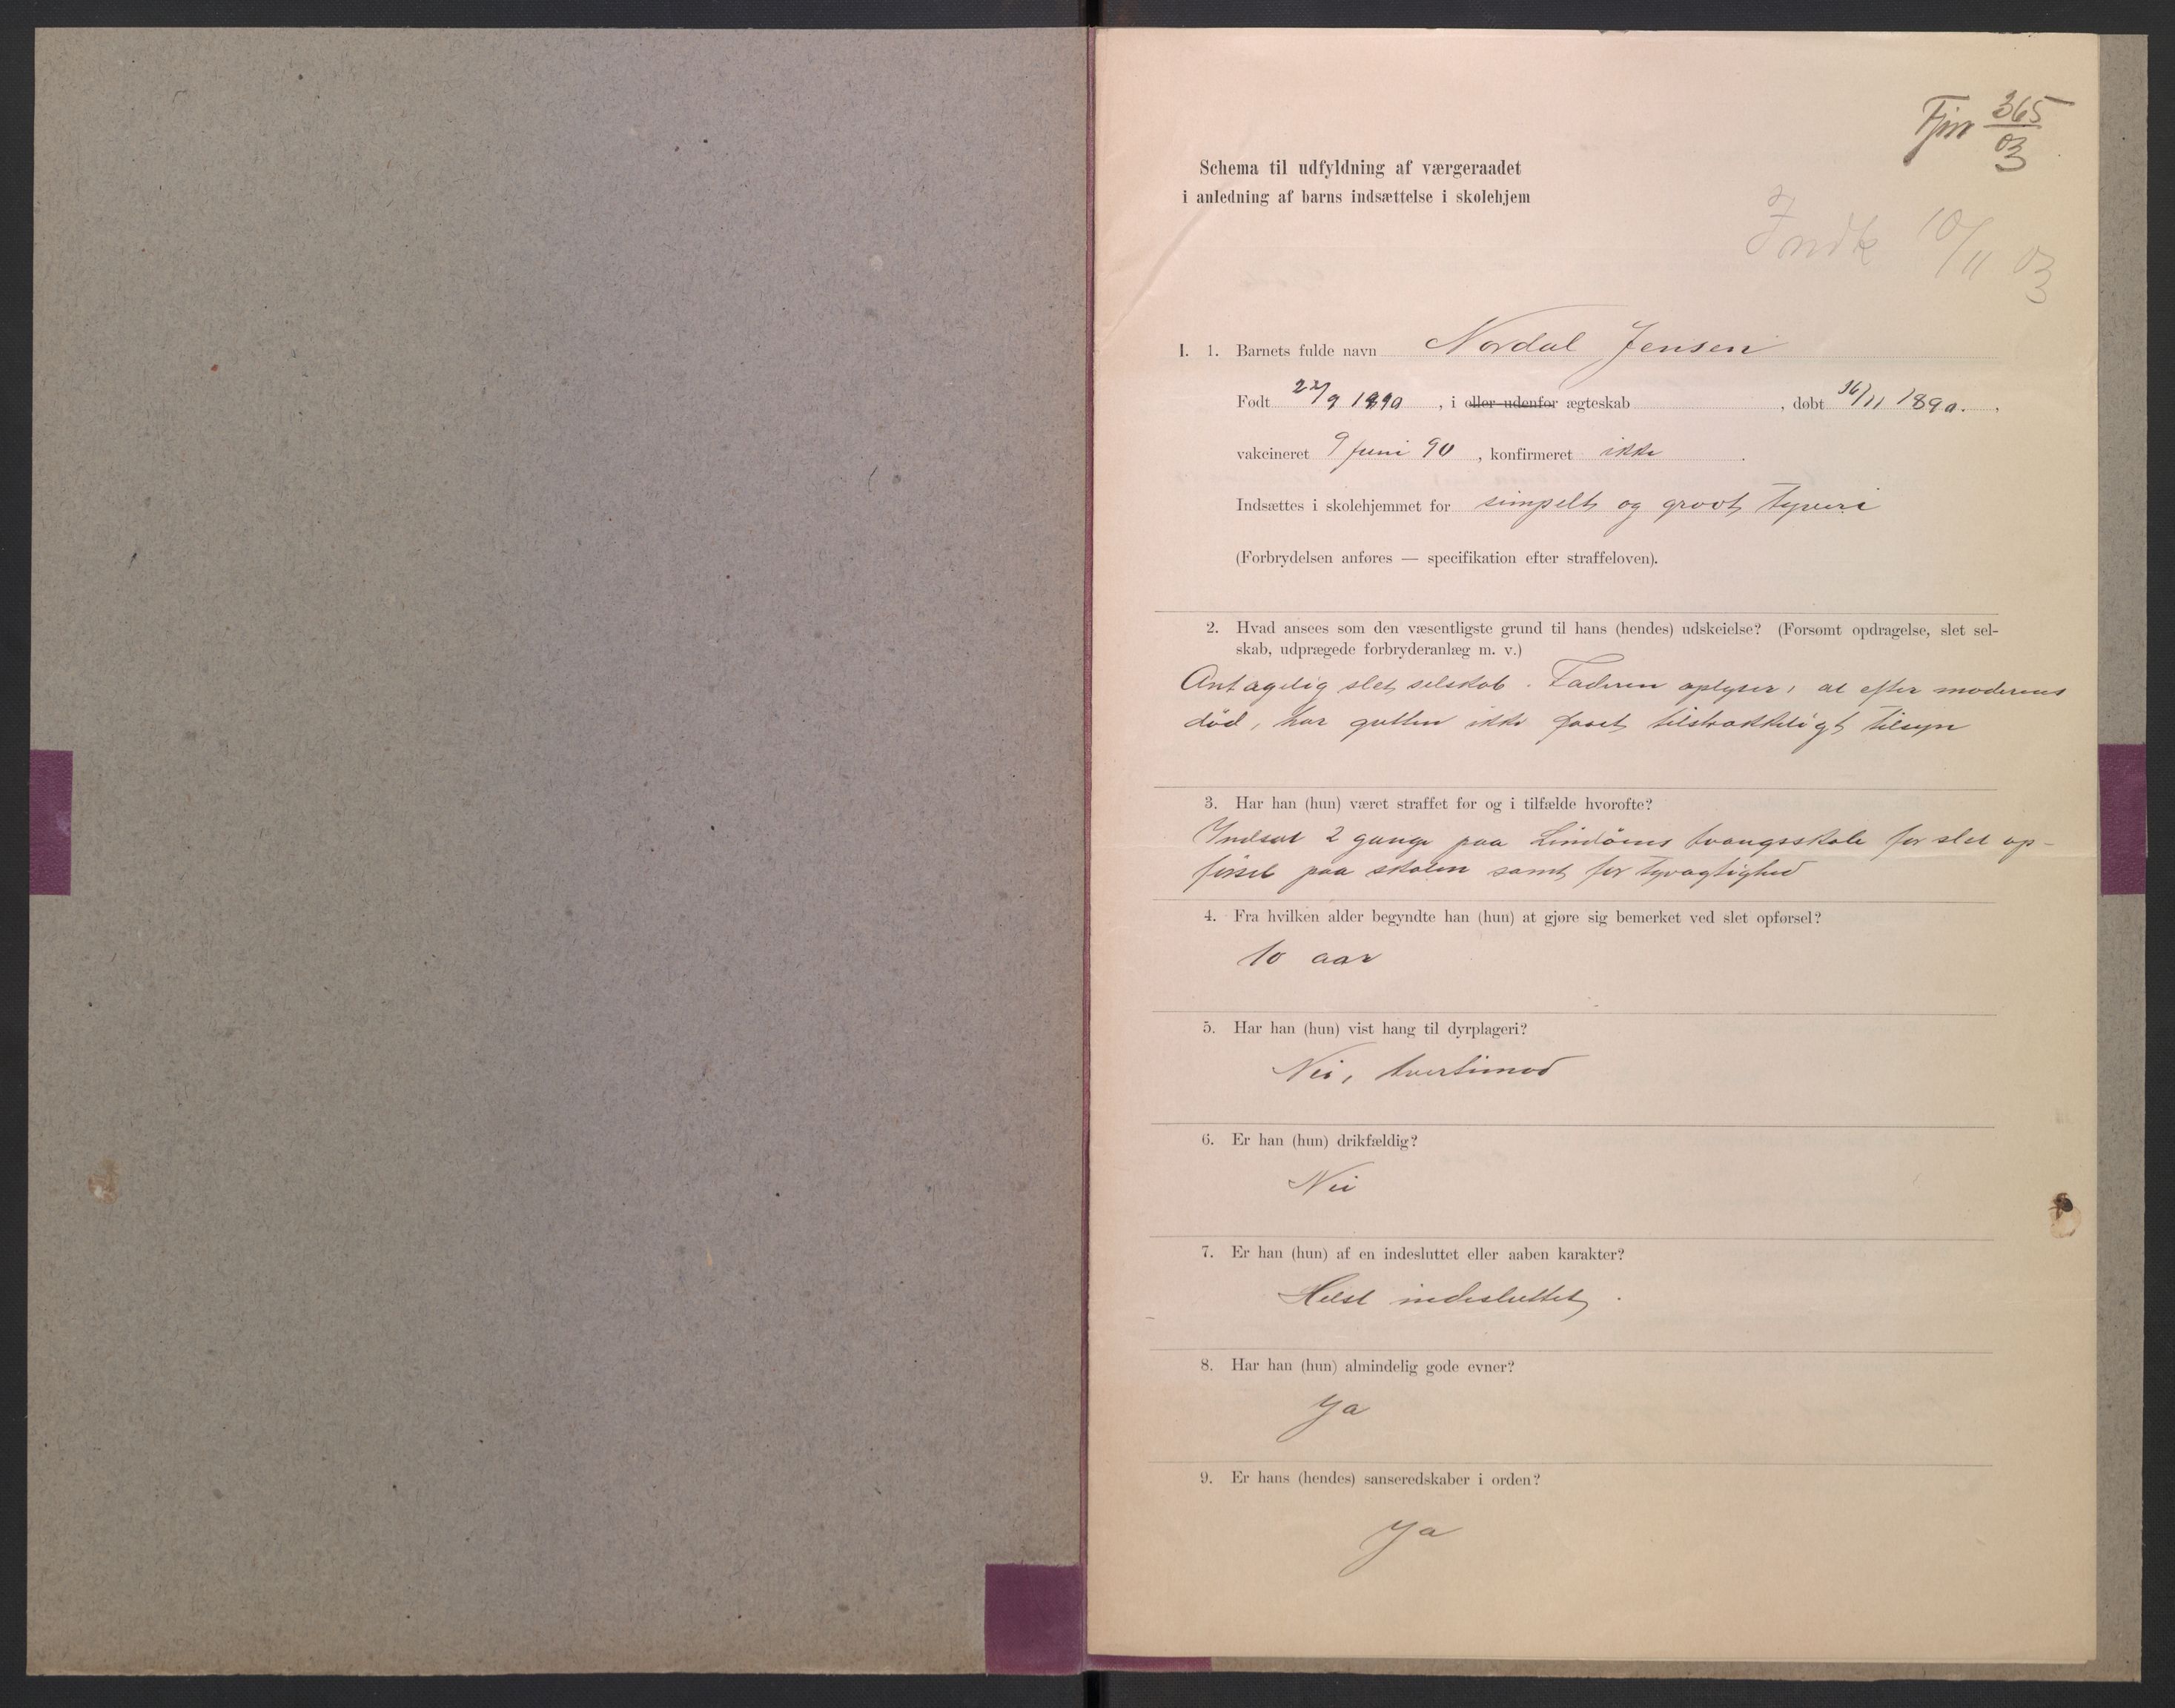 Fjnr 365/03
Schema til udfyldning af værgeraadet
i anledning af barns indsættelse i skolehjem
Indk 10/11 03
I. 1. Barnets fulde navn Nordal Jensen
Født 22/9 1890, i eller udenfor ægteskab , døbt 16/11 1890.
vakcineret 9 juni 90, konfirmeret ikke.
Indsættes i skolehjemmet for simpelt og grovt tyveri
(Forbrydelsen anføres — specifikation efter straffeloven).
2. Hvad ansees som den væsentligste grund til hans (hendes) udskeielse? (Forsømt opdragelse, slet sel-
skab, udprægede forbryderanlæg m. v.)
Antagelig slet selskab. Faderen oplyser, at efter moderens
død, har gutten ikke faaet tilstrækkeligt tilsyn
3. Har han (hun) været straffet før og i tilfælde hvorofte?
Indsat 2 gange paa Lindöens tvangsskole for slet op-
førsel paa skolen samt for tyvagtighed
4. Fra hvilken alder begyndte han (hun) at gjøre sig bemerket ved slet opførsel?
10 aar
5. Har han (hun) vist hang til dyrplageri?
Nei, tvertimod
6. Er han (hun) drikfældig?
Nei
7. Er han (hun) af en indesluttet eller aaben karakter?
Helst indesluttet.
8. Har han (hun) almindelig gode evner?
Ja
9. Er hans (hendes) sanseredskaber i orden?
Ja